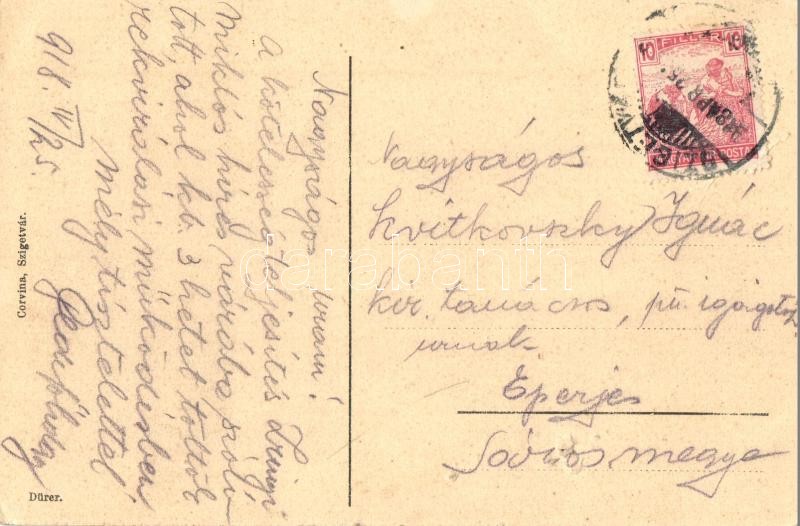 Nagyságos uram!
A kötelesség teljesítés Zrinyi
Miklós híres várába szólí-
tott, ahol kb. 3 hetet töltök
rekvirálási működésben,
mély tisztelettel
918. IV/25.
Corvina, Szigetvár.
Dürer.
10 FILLÉR 10
MAGYAR POSTA
918 APR 26
Nagyságos
Kvitkovszky Ignác
kir. tanácsos, pü. igazgató
urnak
Eperjes
Sáros megye
darabanth